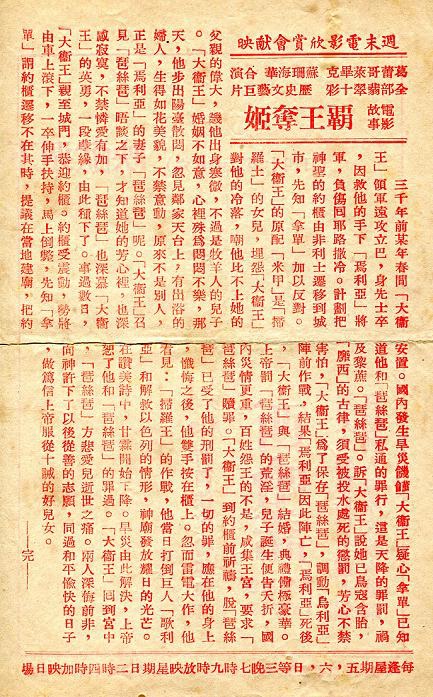 週末電影欣賞會献映
葛蕾哥萊畢克蘇珊海華合演
全部翡翠十彩歷史文藝巨片
電影故事
霸王奪姬
三千年前某年春間「大衞
王」領軍遠攻立巴，身先士卒
，因救他的手下「焉利亞」將
軍，負傷回耶路撒冷。計劃把
神聖的約櫃由非利士遷移到城
市，先知「拿單」加以反對。
「大衞王」的原配「米甲」是「掃
羅王」的女兒，埋怨「大衞王」
對他的冷落，嘲他比不上她的
父親的偉大，譏他出身寒微，不過是牧羊人的兒子
。「大衞王」婚姻不如意，心裡殊爲悶悶不樂，那
天，他步出陽臺散悶，忽見鄰家天台上，有出浴的
婦人，生得如花美貌，不禁意動，原來不是別人，
正是「焉利亞」的妻子「琶絲琶」呢。「大衞王」召
見「琶絲琶」晤談之下，才知道她的芳心裡，也深
感寂寞，不禁憐愛有加，「琶絲琶」也深慕「大衞
王」的英勇，一段孽緣，由此種下了。事過數日，
「大衞王」親至城門，恭迎約櫃。約櫃受震動，勢將
由車上滾下，一卒伸手扶持，馬上倒斃，先知「拿
單」謂約櫃遷移不在其時，提議在當地建廟，把約
安置。國內發生旱災饑饉「大衞王」疑心「拿單」已知
道他和「琶絲琶」私通的罪行，這是天降的罪罰，禍
及黎庶。「琶絲琶」訴「大衞王」說她已鳥寇含胎，
「摩西」的古律，須受被投水處死的懲罰，芳心不禁
害怕，「大衞王」爲了保存「琶絲琶」，調動「烏利亞」
陣前作戰，結果「焉利亞」因此陣亡，「焉利亞」死後
，「大衞王」與「琶絲琶」結婚，典禮備極豪華。
內災情更重，百姓怨王的不是，咸集王宮，要求「
上帝罰「琶絲琶」的荒淫，兒子誕生便告夭折，國
琶絲琶」贖罪。「大衞王」到約櫃前祈禱，脫「琶絲
琶」已受了他的刑罰了，一切的罪，應在他的身上
，懺悔之後，他雙手按在櫃上。忽而雷電大作，他
看見：「掃羅王」的作戰，他當日打倒巨人「歌利
亞」和解救以色列的情形，神廟發放耀日的光芒。
在讚美詩中，甘霖開始下降。旱災由此解决，上帝
恕了他和「琶絲琶」的罪過。「大衞王」囘到宮中
，「琶絲琶」方悲愛兒逝世之痛。兩人深悔前非，
向神許下了以後從善的志願，同過和平愉快的日子
，做篤信上帝服從十誡的好兒女。
——完——
每逢星期五，六，日等三晚七時九時放映星期日二時四時加映日場